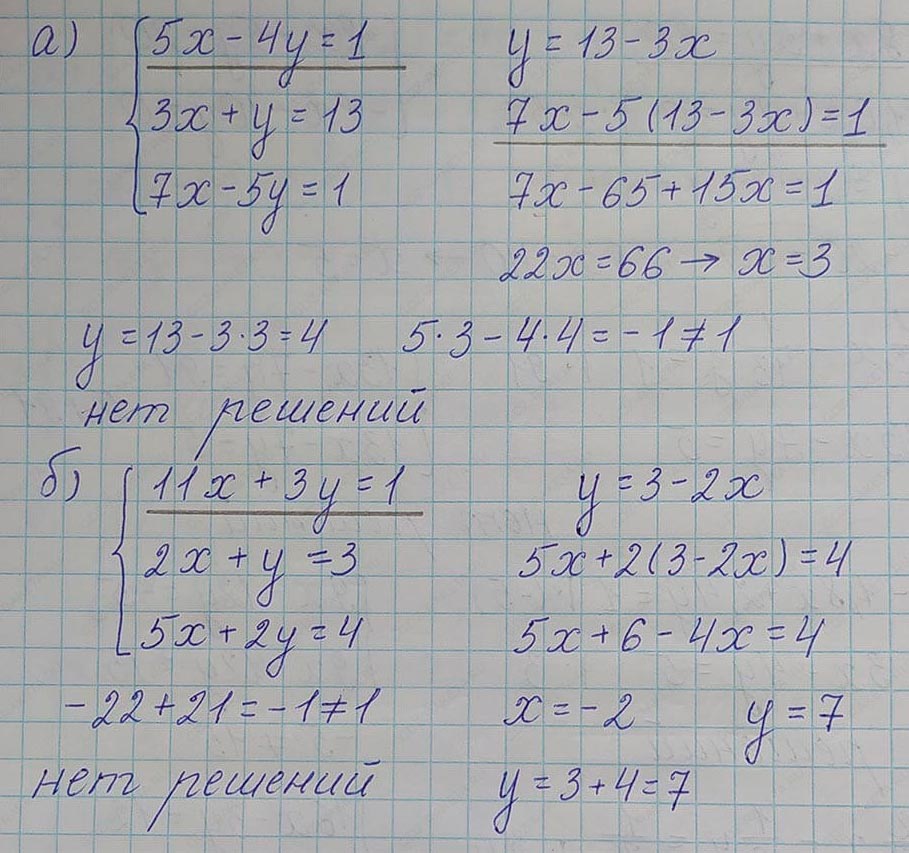 а) 5x - 4y = 1    y = 13 - 3x
3x + y = 13    7x - 5(13 - 3x) = 1
7x - 5y = 1    7x - 65 + 15x = 1
22x = 66 → x = 3
y = 13 - 3·3 = 4    5·3 - 4·4 = -1 ≠ 1
нет решений
б) 11x + 3y = 1    y = 3 - 2x
2x + y = 3    5x + 2(3 - 2x) = 4
5x + 2y = 4    5x + 6 - 4x = 4
-22 + 21 = -1 ≠ 1    x = -2    y = 7
нет решений    y = 3 + 4 = 7